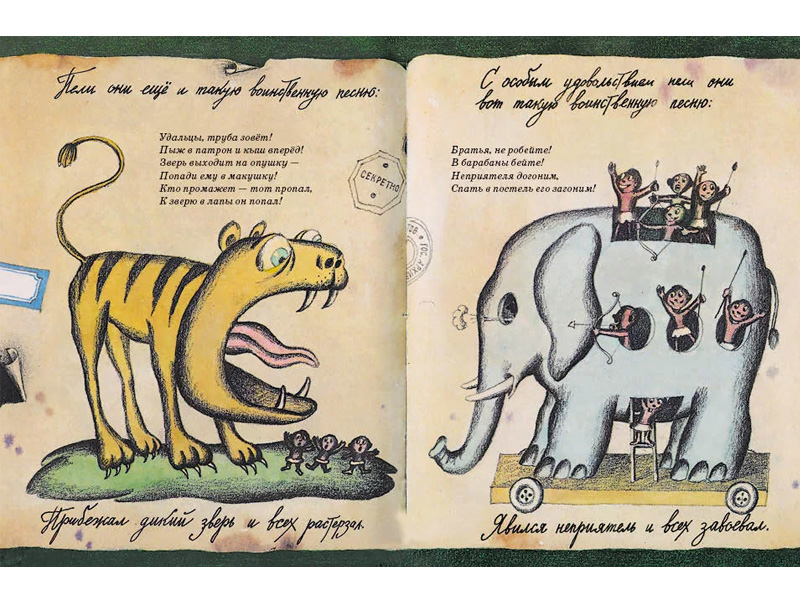 Пели они ещё и такую воинственную песню:
Удальцы, труба зовёт!
Пыж в патрон и кыш вперёд!
Зверь выходит на опушку —
Попади ему в макушку!
Кто промажет — тот пропал,
К зверю в лапы он попал!
СЕКРЕТНО
Прибежал дикий зверь и всех растерзал.
С особым удовольствием пели они
вот такую воинственную песню:
Братья, не робейте!
В барабаны бейте!
Неприятеля догоним,
Спать в постель его загоним!
Явился неприятель и всех завоевал.